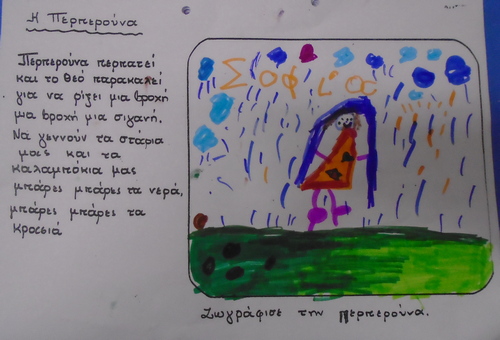 Η Περπερούνα
Περπερούνα περπατεί
και το θεό παρακαλεί
για να ρίξει μια βροχή
μια βροχή μια σιγανή.
Να γεννούν τα στάρια
μας και τα
καλαμπόκια μας
μπάρες μπάρες τα νερά,
μπάρες μπάρες τα
κρασιά
Σοφία
Ζωγράφισε την περπερούνα.